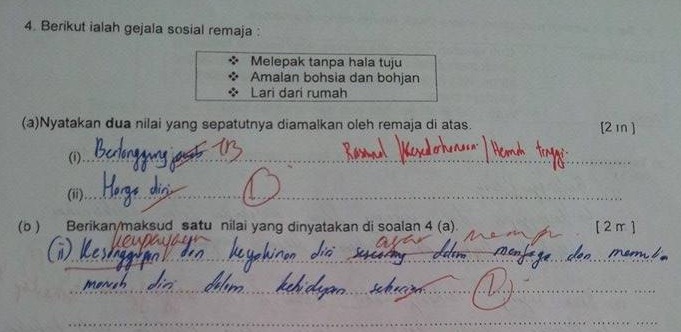 4. Berikut ialah gejala sosial remaja :
❖ Melepak tanpa hala tuju
❖ Amalan bohsia dan bohjan
❖ Lari dari rumah
(a)Nyatakan dua nilai yang sepatutnya diamalkan oleh remaja di atas. [2 m ]
(i) Bertanggungjawab Rasional / Kesederhanaan / Hemah tinggi.
(ii) Harga diri 1
(b ) Berikan maksud satu nilai yang dinyatakan di soalan 4 (a). [ 2 m ]
keupayaan agar mampu
(ii) Kesanggupan dan keyakinan diri seseorang dalam menjaga dan memulia
maruah diri dalam kehidupan seharian 1